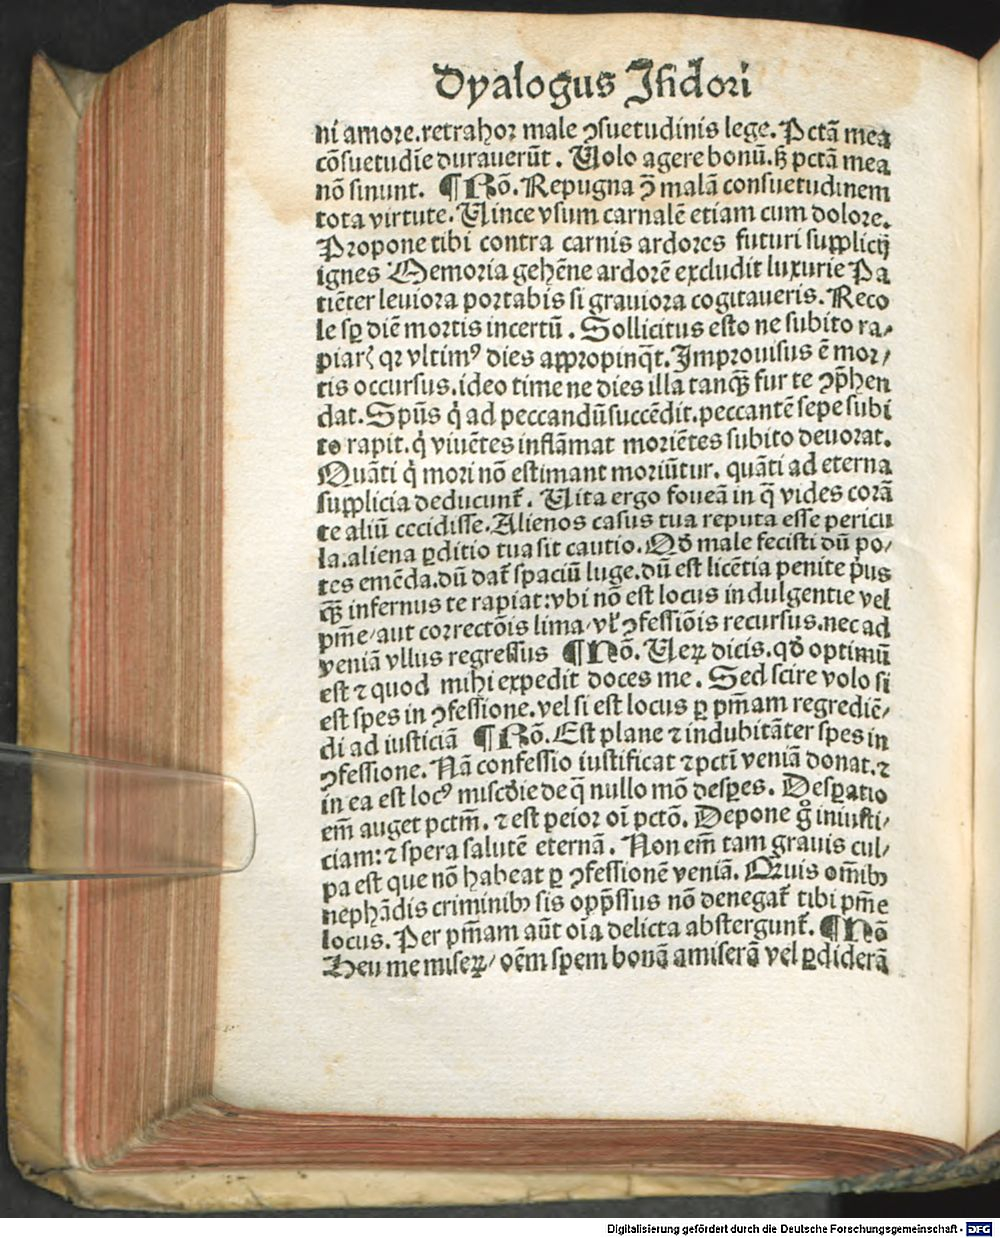 Dyalogus Isidori
ni amore.retrahor male ↄsuetudinis lege. Pctā mea
cōsuetudīe durauerūt . Uolo agere bonū.sꝫ pctā mea
nō sinunt. ¶ Rō. Repugna ↄ̄ malā consuetudinem
tota virtute. Uince vsum carnalē etiam cum dolore.
Propone tibi contra carnis ardores futuri supplicij
ignes Memoria gehēne ardorē excludit luxurie Pa
tiēter leuiora portabis si grauiora cogitaueris. Reco
le sꝑ diē mortis incertū . Sollicitus esto ne subito ra⸗
piarꝭ qr vltimꝰ dies appropinq̄t. Improuisus ē mor/
tis occursus.ideo time ne dies illa tanqꝫ fur te ↄp̄hen
dat. Spūs q̇ ad peccandū succēdit.peccantē sepe subi
to rapit. q̇ viuētes inflāmat moriētes subito deuorat.
Quāti q̇ mori nō estimant moriūtur. quāti ad eterna
supplicia deducunt̄. Uita ergo foueā in q̄ vides corā
te aliū cccidisse. Alienos casus tua reputa esse pericu
la.aliena ꝑditio tua sit cautio. Qđ male fecisti dū po/
tes emēda.dū dat̄ spaciū luge.dū est licētia penite pṙus
qꝫ infernus te rapiat:vbi nō est locus indulgentie vel
pm̄e/aut correctōis lima/vł ↄfessiōis recursus.nec ad
veniā vllus regressus ¶ Nō. Ueꝝ dicis.qđ optimū
est ⁊ quod mihi expedit doces me. Sed scire volo si
est spes in ↄfessione.vel si est locus ꝑ pm̄am regrediē/
di ad iusticiā ¶ Rō. Est plane ⁊ indubitāter spes in
ↄfessione. Nā confessio iustificat ⁊ pctī veniā donat.⁊
in ea est locꝰ miscđie de q̄ nullo mō desꝑes. Desꝑatio
em̄ auget pctm̄. ⁊ est peior oī pctō. Depone g̊ iniusti/
ciam: ⁊ spera salutē eternā. Non em̄ tam grauis cul/
pa est que nō habeat ꝑ ↄfessionē veniā. Qꝫuis om̄ibꝫ
nephādis criminibꝫ sis opp̄ssus nō denegat̄ tibi pm̄e
locus. Per pm̄am aūt oīa delicta abstergunt̄. ¶ Nō
Heu me miseꝝ/oēm spem bonā amiserā vel ꝑdiderā
Digitalisierung gefördert durch die Deutsche Forschungsgemeinschaft - DFG